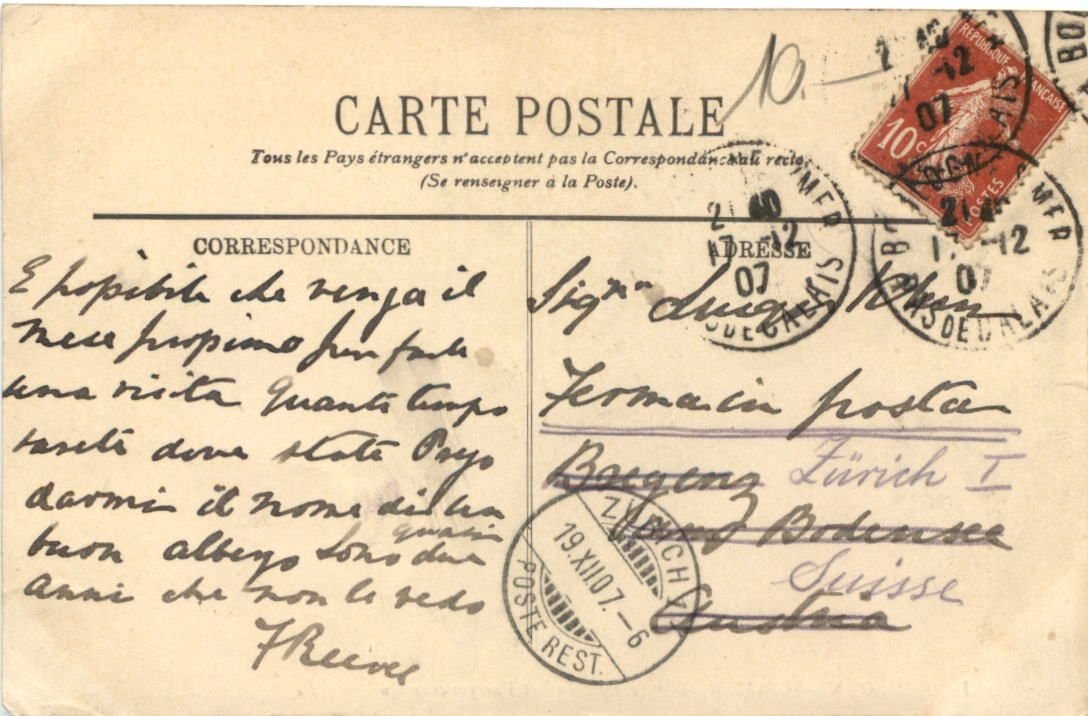 CARTE POSTALE
Tous les Pays étrangers n'acceptent pas la Correspondance au recto
(Se renseigner à la Poste).
10.
RÉPUBLIQUE FRANÇAISE
10c
POSTES
21 40
17 -12
07
PAS DE CALAIS
CORRESPONDANCE
E possibile che venga il
mese prossimo per farle
una visita Quanto tempo
sarete dove state Prego
darmi il nome di un
buon albergo Sono quasi due
anni che non la vedo
F Reeve
ADRESSE
Luigi
Ferma in posta
Bregenz Zürich I
Bodensee
Suisse
Austria
ZÜRICH
19.XII.07.-6
POSTE REST.